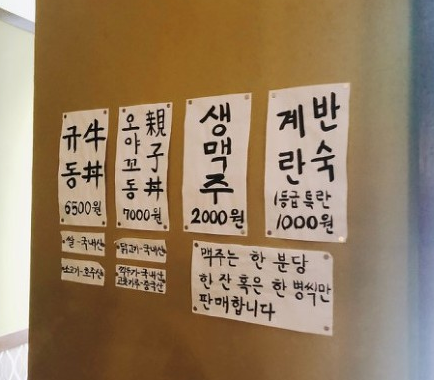 규동
牛丼
6500원
오야꼬동
親子丼
7000원
생맥주
2000원
반숙
계란
1등급 특란
1000원
쌀-국내산
닭고기-국내산
소고기-호주산
깍두기-국내산
고춧가루-중국산
맥주는 한 분당
한 잔 혹은 한 병씩만
판매합니다